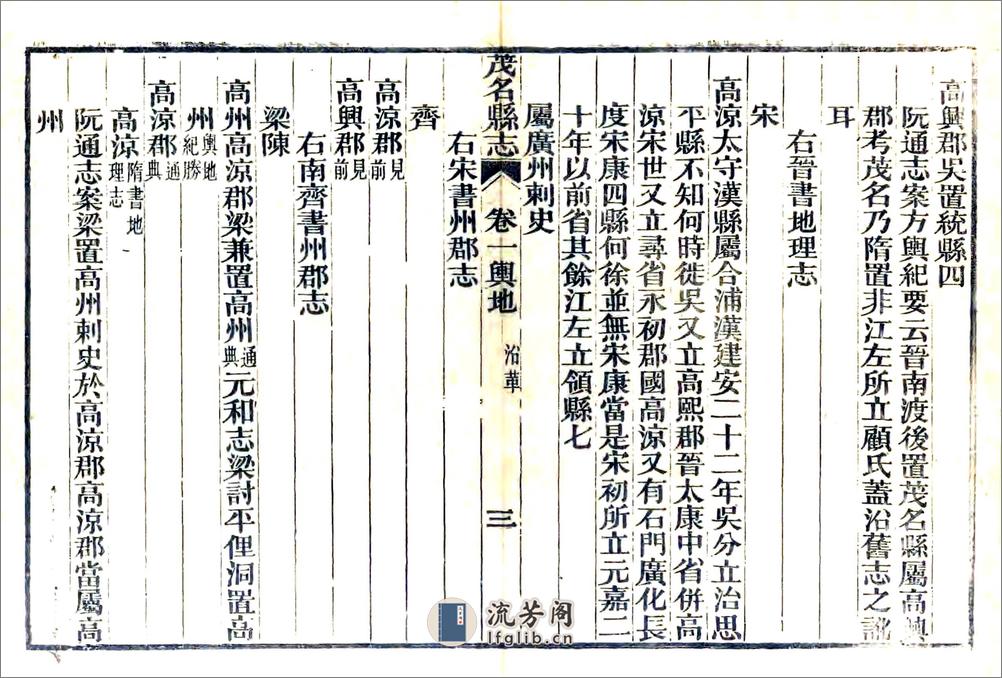 高興郡吳置統縣四
阮通志案方輿紀要云晉南渡後置茂名縣屬高興
郡考茂名乃隋置非江左所立顧氏蓋沿舊志之訛
耳
右晉書地理志
宋
高涼太守漢縣屬合浦漢建安二十二年吳分立治思
平縣不知何時徙吳又立高熙郡晉太康中省併高
涼宋世又立尋省永初郡國高涼又有石門廣化長
度宋康四縣何徐並無宋康當是宋初所立元嘉二
十年以前省其餘江左立領縣七
屬廣州刺史
右宋書州郡志
茂名縣志 卷一輿地 沿革 三
齊
高涼郡見前
高興郡見前
右南齊書州郡志
梁陳
高州高涼郡梁兼置高州通典元和志梁討平俚洞置高
州輿地紀勝
高涼郡通典
高涼隋書地理志
阮通志案梁置高州刺史於高涼郡高涼郡當屬高
州
流芳阁
lfglib.cn